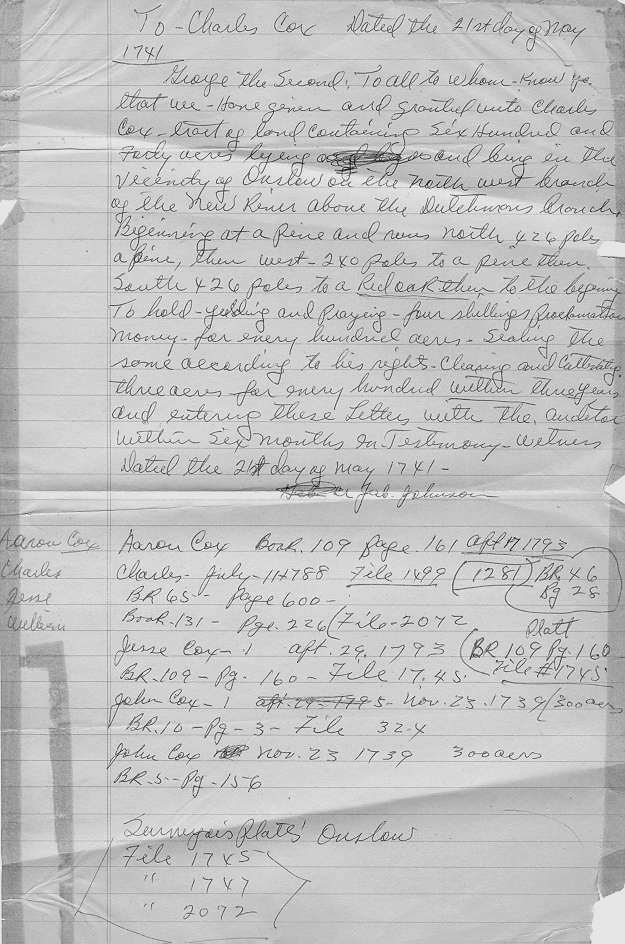 To - Charles Cox Dated the 21st day of May
1741
George the Second, To all to whom - Know ye
that we - Have given and granted unto Charles
Cox - tract of land containing Six Hundred and
Forty acres lying and being in the
Vicinity of Onslow on the north west branch
of the New River above the Dutchmans branch,
Beginning at a pine and runs north 426 poles
a pine, then west - 240 poles to a pine then
South 426 poles to a Red oak then to the begining
To hold - yielding and praying - four shillings Proclamation
money - for every hundred acres - Sealing the
same according to his right - Clearing and Cultivating
three acres for every hundred within three years
and entering these Letters with the auditor
within Six months In Testimony - Witness
Dated the 21st day of May 1741 -
Johnson
Aaron Cox
Charles
Jesse
William
Aaron Cox Book. 109 page. 161 apt 17 1793
Charles - July - 11 1788 File 1499 (1281) BR 46
Pg 28
BR 65 - page 600 -
Book - 131 - Pge. 226 (File - 2072
Platt
Jesse Cox - 1 apt. 29. 1793 (BR 109 Pg. 160
File # 1745
BR. 109 - Pg. 160 - File 17.45.
John Cox - 1 apt. 29 - 1795 - Nov. 23. 1739 (300 acers
BR. 10 - Pg - 3 - File 32-4
John Cox Nov. 23 1739 300 acers
BR. 5 - Pg - 156
Surveyois Platts' Onslow
File 1745
" 1747
" 2072